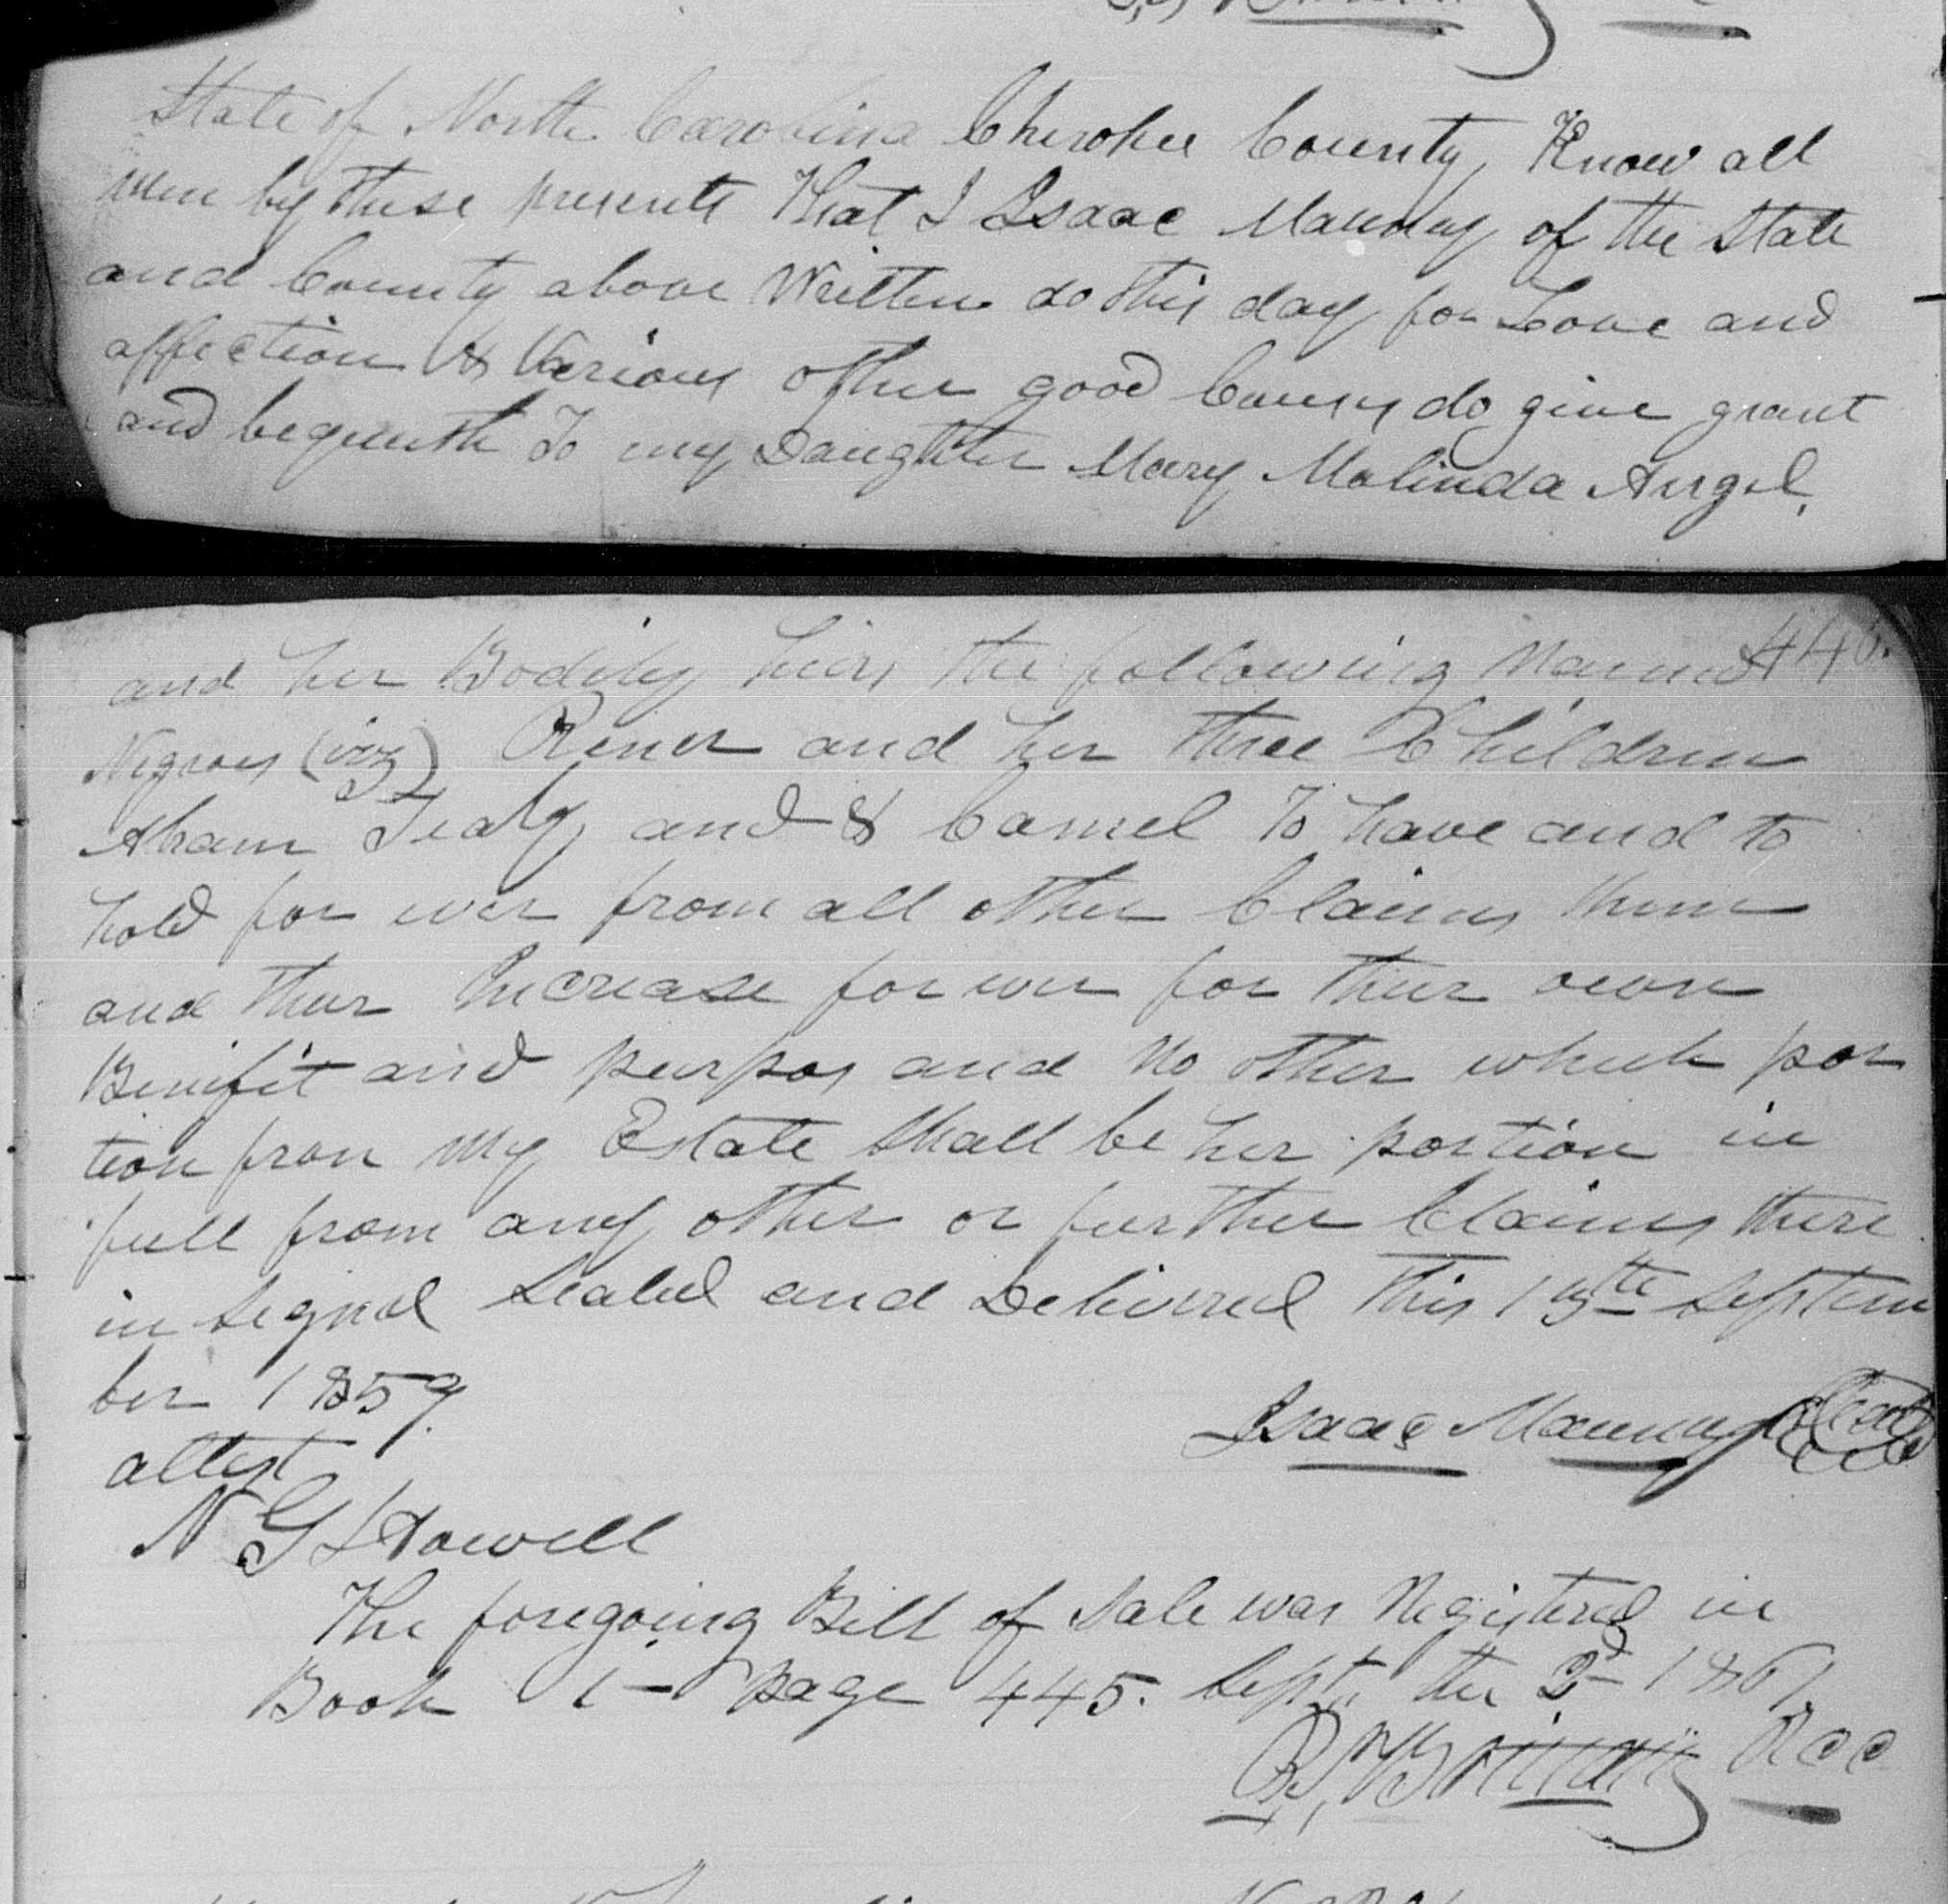 State of North Carolina Cherokee County, Know all
men by these presents That I Isaac Mauney of the State
and County above Written do this day for Love and
affection & Various other good Causes do give grant
and bequeath To my Daughter Mary Malinda Angel,
446.
and her Bodily heirs the following Named
Negroes (viz) and her three Children
Abram and & Camel To have and to
hold for ever from all other Claims them
and their Increase for ever for their own
Benifit and purpos and No other which por
tion from My Estate Shall be her portion in
full from any other or further Claims there
in Signed Sealed and Delivered This 15th Septem
ber 1859.
Isaac Mauney Seal
attest
N G Howell
The foregoing Bill of Sale was Registered in
Book 1 - page 445. Sept. the 2d 1861